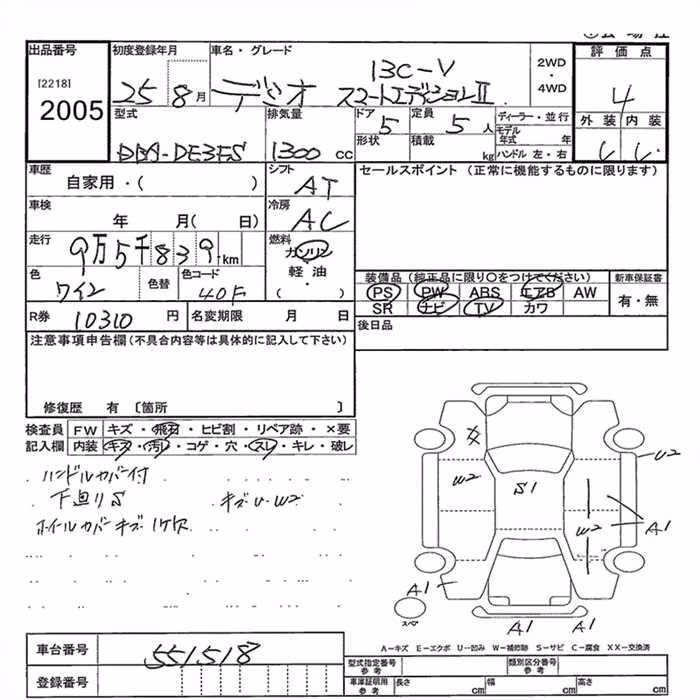 出品番号 初度登録年月 車名・グレード 2WD・4WD 評価点
[2218]
2005
25 8月 デミオ 13C-V
スマートエディションⅡ
4
型式 排気量 ドア 定員 ディーラー・並行 外装 内装
DBA-DE3FS 1300cc 5 5人 モデル年式 年
形状 積載 kg ハンドル 左・右
車歴 シフト セールスポイント (正常に機能するものに限ります)
自家用・( ) AT
車検 冷房
年 月( 日) AC
走行 燃料
9万5千839km ガソリン
軽油
( )
色 色替 色コード
ワイン 40F
装備品(純正品に限り○をつけてください) 新車保証書
PS PW ABS エアB AW 有・無
SR ナビ TV カワ
R券 10310円 名変期限 月 日 後日品
注意事項申告欄(不具合内容等は具体的に記入して下さい)
修復歴 有 〔箇所 〕
検査員 FW キズ・飛石・ヒビ割・リペア跡・×要
記入欄 内装 キズ・汚レ・コゲ・穴・スレ・キレ・破レ
ハンドルカバー付
下廻りS キズ・U・W2
ホイールカバーキズ・1ケ欠
U2
W2
S1
W2
A1
A1
スペア
A1 A1
A−キズ E−エクボ U−凹み W−補修跡 S−サビ C−腐食 XX−交換済
車台番号 551518
型式指定番号 参考 類別区分番号 参考
登録番号 車庫証明用 参考 長さ cm 幅 cm 高さ cm